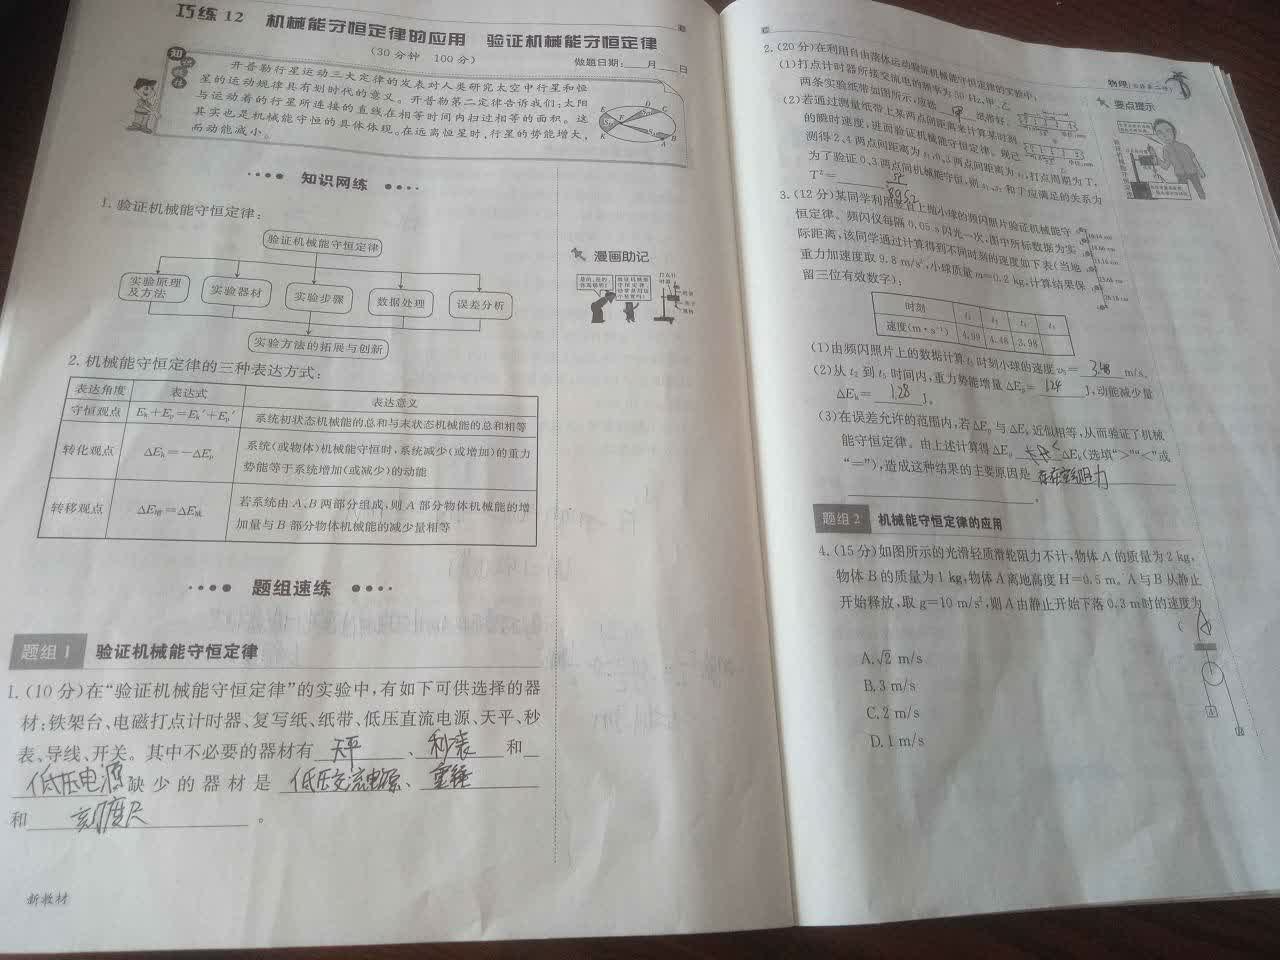 巧练 12 机械能守恒定律的应用 验证机械能守恒定律
(30 分钟 100 分) 做题日期:___月___日
开普勒行星运动三大定律的发表对人类研究太空中行星和恒
星的运动规律具有划时代的意义。开普勒第二定律告诉我们:太阳
与运动着的行星所连接的直线在相等时间内扫过相等的面积。这
其实也是机械能守恒的具体体现。在远离恒星时,行星的势能增大,
而动能减小。
知识网练
1. 验证机械能守恒定律:
验证机械能守恒定律
实验原理及方法 实验器材 实验步骤 数据处理 误差分析
实验方法的拓展与创新
漫画助记
2. 机械能守恒定律的三种表达方式:
表达角度 表达式 表达意义
守恒观点 Ek+Ep=Ek′+Ep′ 系统初状态机械能的总和与末状态机械能的总和相等
转化观点 ΔEk=-ΔEp 系统(或物体)机械能守恒时,系统减少(或增加)的重力
势能等于系统增加(或减少)的动能
转移观点 ΔE增=ΔE减 若系统由 A、B 两部分组成,则 A 部分物体机械能的增
加量与 B 部分物体机械能的减少量相等
题组速练
题组 1 验证机械能守恒定律
1. (10 分)在“验证机械能守恒定律”的实验中,有如下可供选择的器
材:铁架台、电磁打点计时器、复写纸、纸带、低压直流电源、天平、秒
表、导线、开关。其中不必要的器材有 天平 、 秒表 和
低压电源 缺少的器材是 低压交流电源、 重锤
和 刻度尺 。
新教材
物理(必修第二册)
2. (20 分)在利用自由落体运动验证机械能守恒定律的实验中,
(1)打点计时器所接交流电的频率为 50 Hz,甲、乙
两条实验纸带如图所示,应选 甲 纸带好。
(2)若通过测量纸带上某两点间距离来计算某时刻
的瞬时速度,进而验证机械能守恒定律。现已
测得 2、4 两点间距离为 s1,0、3 两点间距离为 s2,打点周期为 T,
为了验证 0、3 两点间机械能守恒,则 s1、s2 和 T 应满足的关系为
T²= s1² 8gs2
要点提示
3. (12 分)某同学利用竖直上抛小球的频闪照片验证机械能守
恒定律。频闪仪每隔 0.05 s 闪光一次,图中所标数据为实
际距离,该同学通过计算得到不同时刻的速度如下表(当地
重力加速度取 9.8 m/s²,小球质量 m=0.2 kg,计算结果保
留三位有效数字):
时刻 t2 t3 t4 t5
速度(m·s⁻¹) 4.99 4.48 3.98
(1)由频闪照片上的数据计算 t5 时刻小球的速度 v5= 3.48 m/s。
(2)从 t2 到 t5 时间内,重力势能增量 ΔEp= 1.24 J,动能减少量
ΔEk= 1.28 J。
(3)在误差允许的范围内,若 ΔEp 与 ΔEk 近似相等,从而验证了机械
能守恒定律。由上述计算得 ΔEp < ΔEk(选填“>”“<”或
“=”),造成这种结果的主要原因是 存在空气阻力
。
题组 2 机械能守恒定律的应用
4. (15 分)如图所示的光滑轻质滑轮阻力不计,物体 A 的质量为 2 kg,
物体 B 的质量为 1 kg,物体 A 离地高度 H=0.5 m。A 与 B 从静止
开始释放,取 g=10 m/s²,则 A 由静止开始下落 0.3 m 时的速度为
( A
A.√2 m/s
B.3 m/s
C.2 m/s
D.1 m/s
A
B